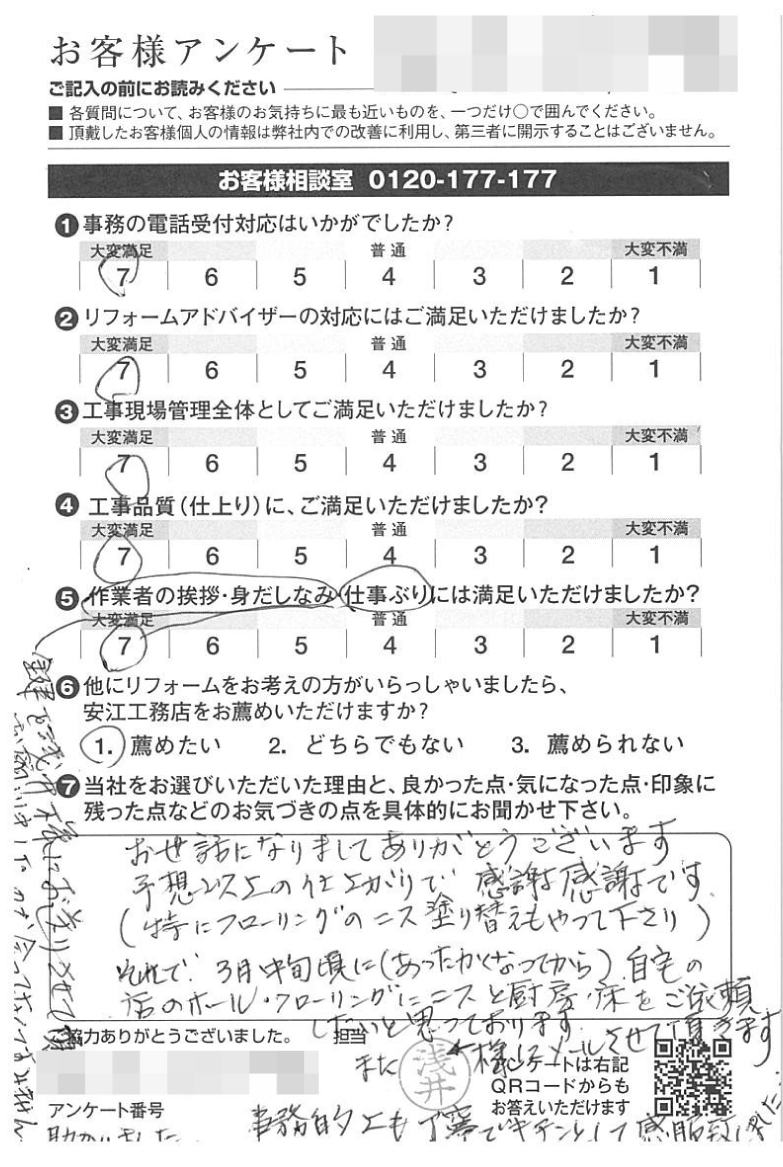 お客様アンケート
ご記入の前にお読みください
■ 各質問について、お客様のお気持ちに最も近いものを、一つだけ○で囲んでください。
■ 頂戴したお客様個人の情報は弊社内での改善に利用し、第三者に開示することはございません。
お客様相談室 0120-177-177
❶事務の電話受付対応はいかがでしたか?
大変満足 普通 大変不満
7 6 5 4 3 2 1
❷リフォームアドバイザーの対応にはご満足いただけましたか?
大変満足 普通 大変不満
7 6 5 4 3 2 1
❸工事現場管理全体としてご満足いただけましたか?
大変満足 普通 大変不満
7 6 5 4 3 2 1
❹工事品質(仕上り)に、ご満足いただけましたか?
大変満足 普通 大変不満
7 6 5 4 3 2 1
❺作業者の挨拶・身だしなみ・仕事ぶりには満足いただけましたか?
大変満足 普通 大変不満
7 6 5 4 3 2 1
❻他にリフォームをお考えの方がいらっしゃいましたら、
安江工務店をお薦めいただけますか?
1. 薦めたい 2. どちらでもない 3. 薦められない
❼当社をお選びいただいた理由と、良かった点・気になった点・印象に
残った点などのお気づきの点を具体的にお聞かせ下さい。
お世話になりましてありがとうございます
予想以上の仕上がりで 感謝感謝です
(特にフローリングのニス塗り替えもやって下さり)
それで 3月中旬頃に(あったかくなってから)自宅の
店のホール・フローリングにニスと厨房・床をご依頼
したいと思っております
また 様にメールさせて頂きます
協力ありがとうございました。 担当
浅井
アンケートは右記
QRコードからも
お答えいただけます
アンケート番号
事務的上も丁寧でキチンとして感服致しました
助かりました